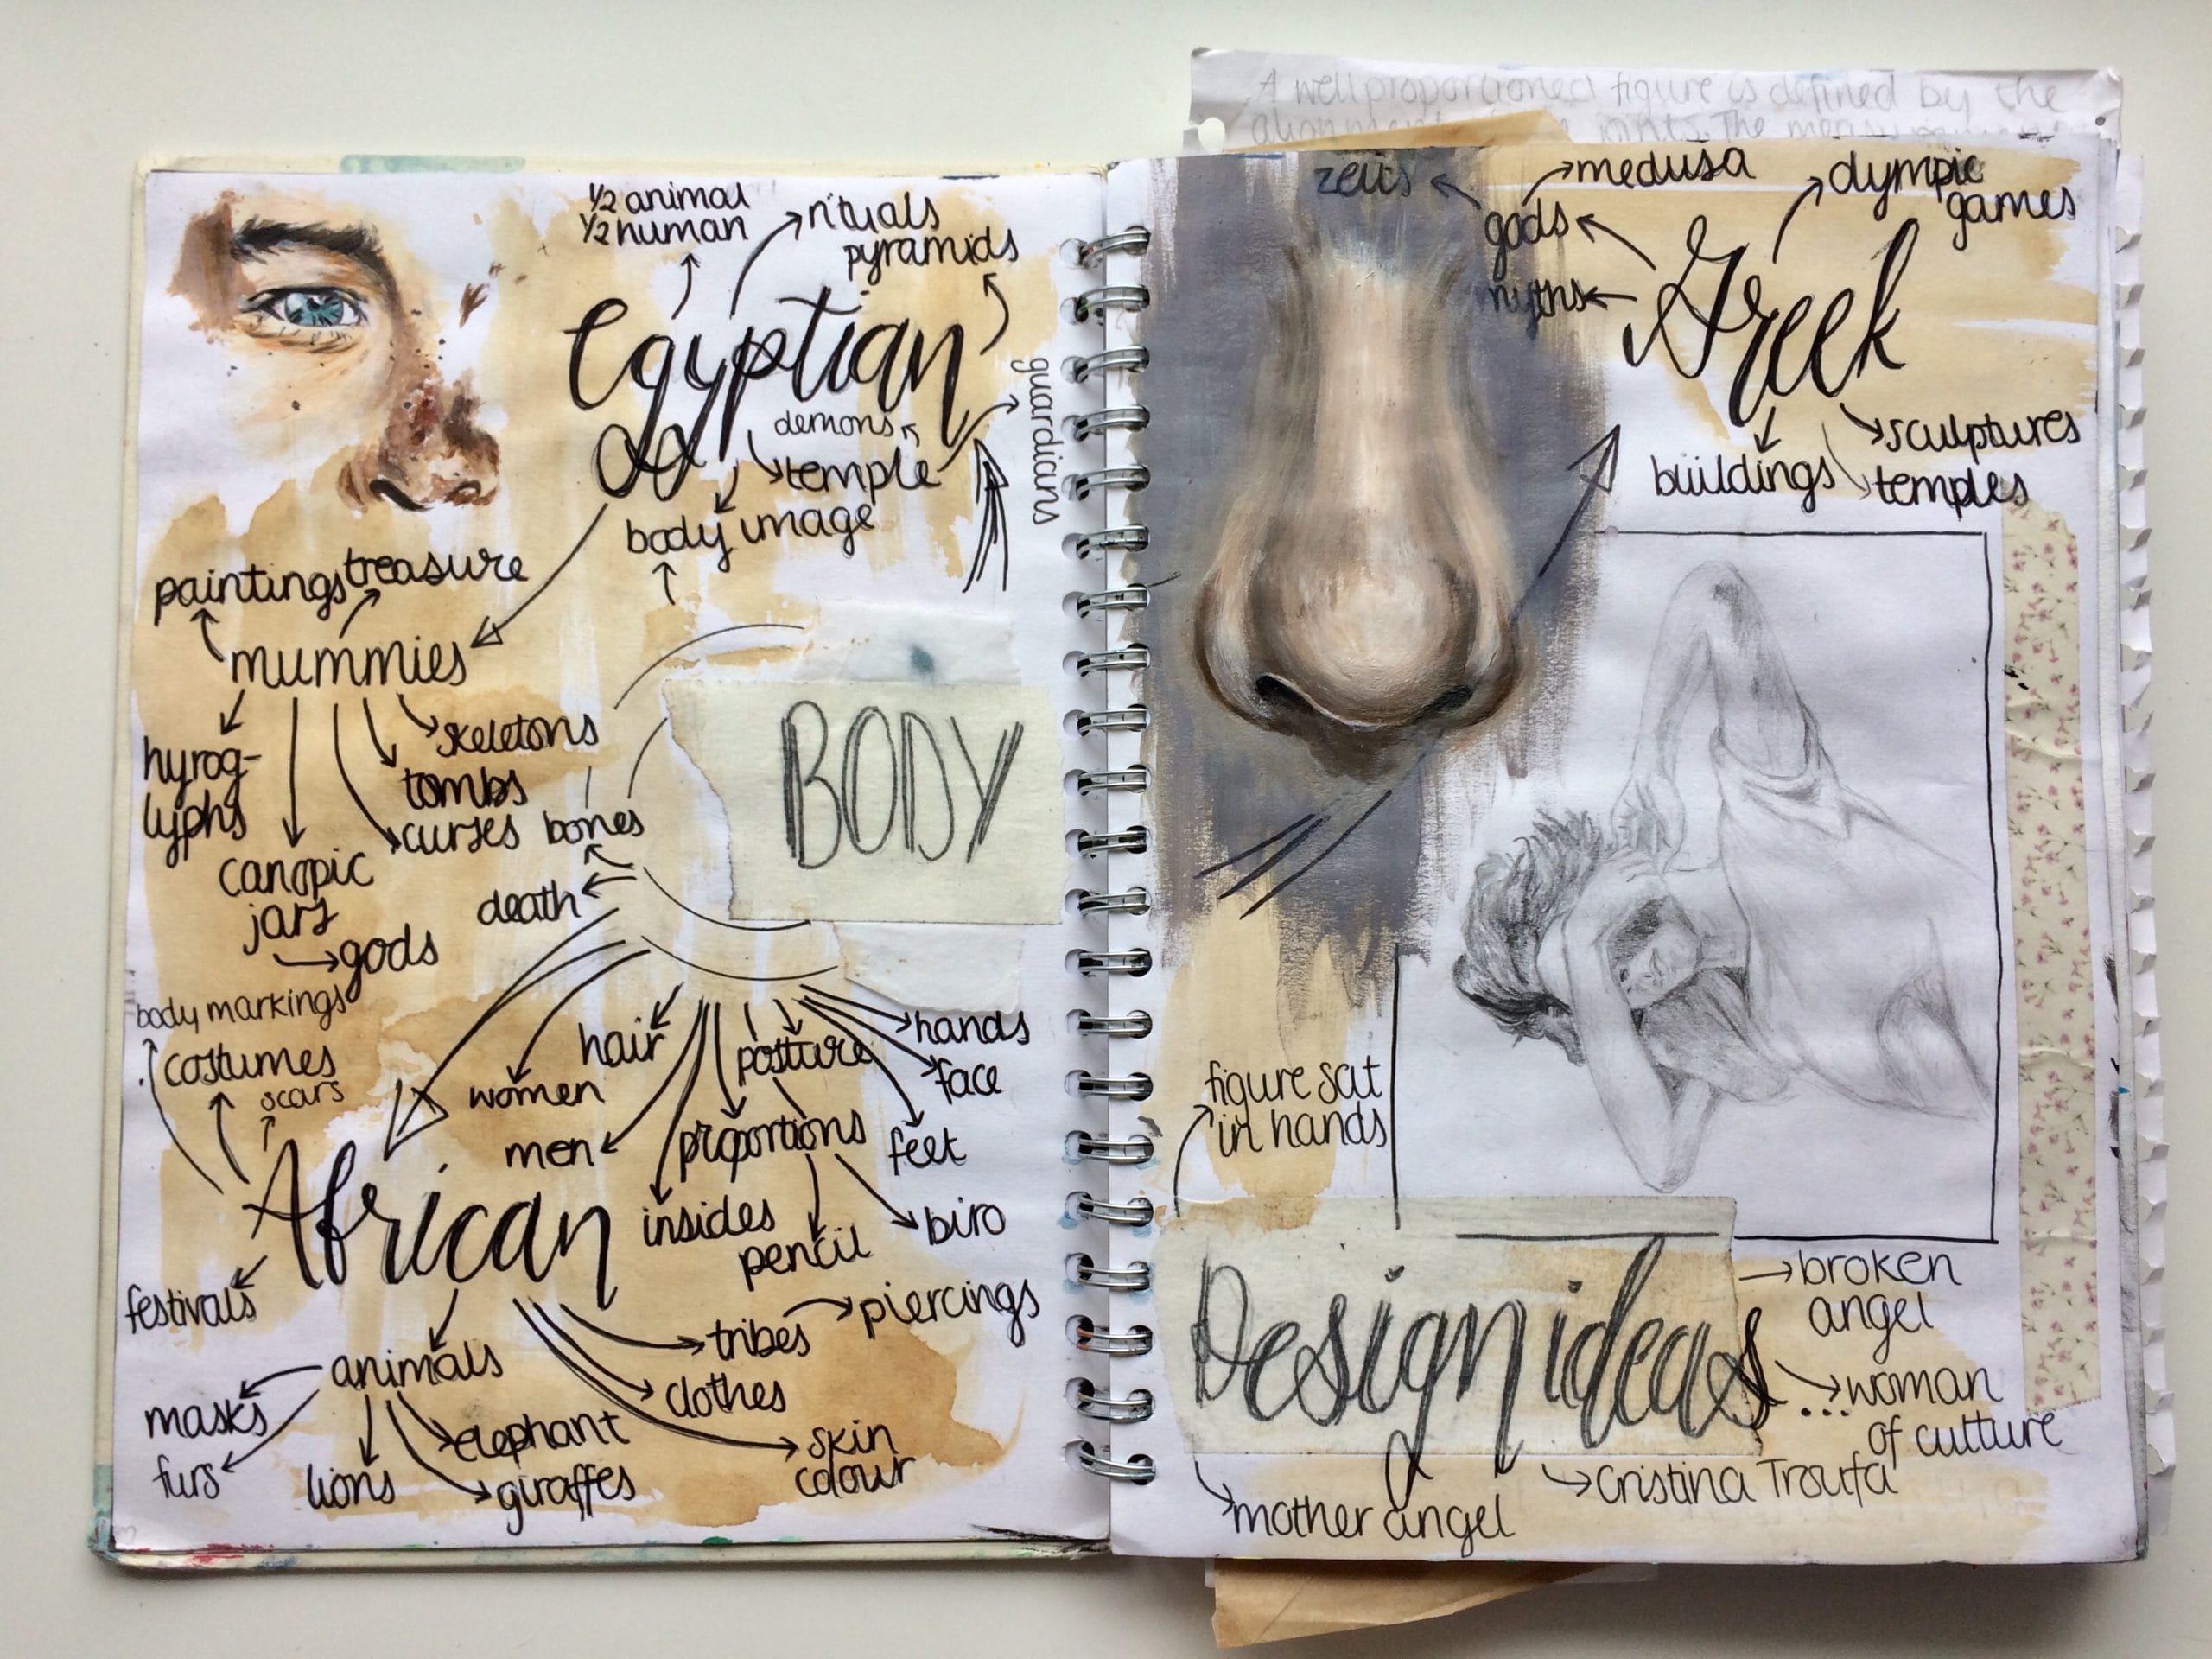 A well proportioned figure is defined by the
joints. The
½ animal
½ human
rituals
pyramids
Egyptian
guardians
demons
temple
body image
paintings
treasure
mummies
hyrog-
lyphs
skeletons
tombs
curses
canopic
jars
gods
bones
death
BODY
body markings
costumes
scars
African
festivals
animals
masks
furs
lions
elephant
giraffes
tribes
piercings
clothes
skin
colour
hair
women
men
posture
proportions
insides
pencil
biro
hands
face
feet
zeus
gods
medusa
olympic
games
myths
Greek
buildings
sculptures
temples
figure sat
in hands
Design ideas
broken
angel
woman
of culture
Cristina Troufa
mother angel